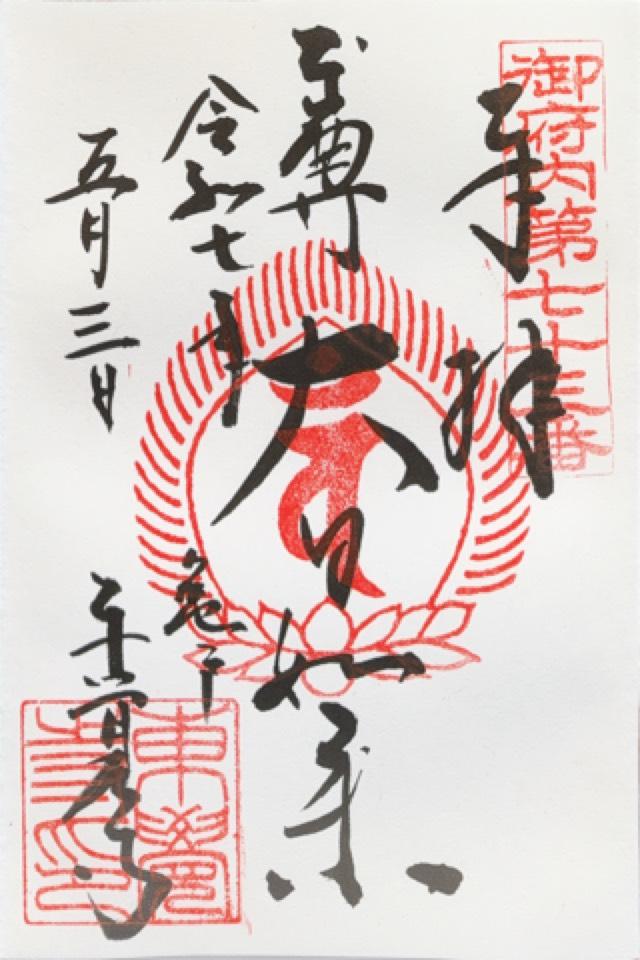 御府内第七十三番
奉拝
本尊 大日如来
令和七年
五月三日
亀戸
東覺寺
東覺寺印